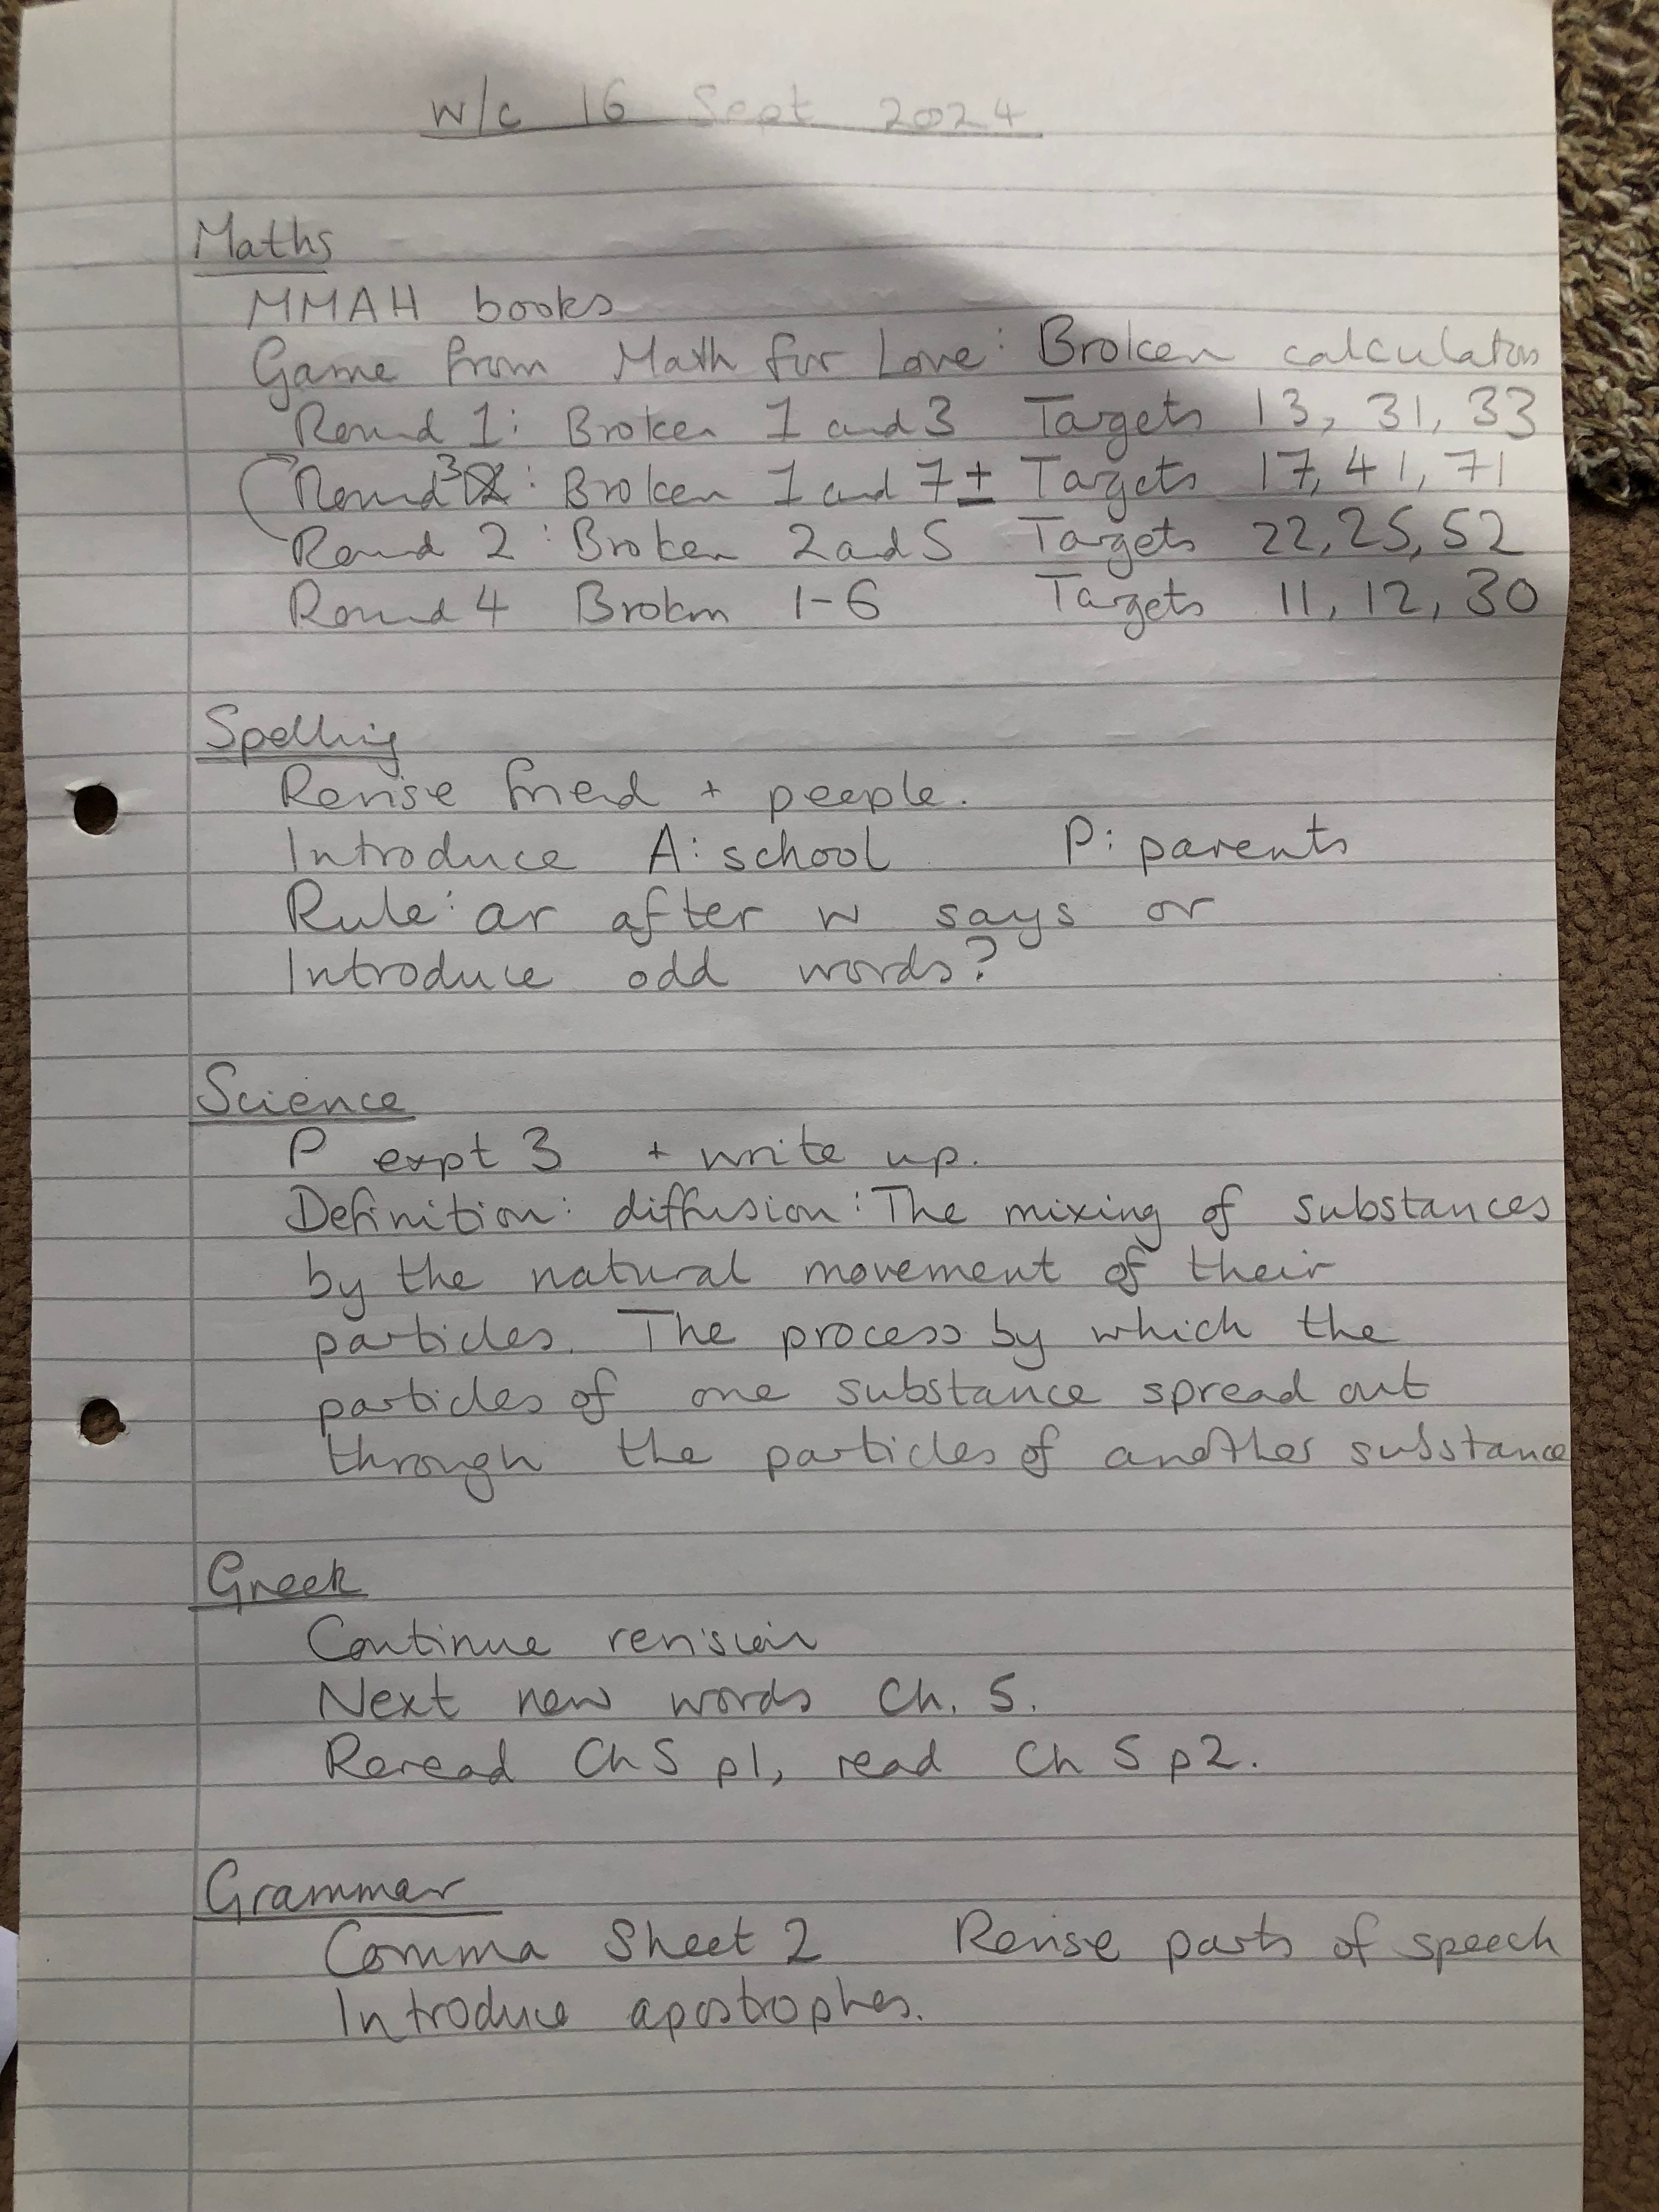 W/c 16 Sept 2024
Maths
MMAH books
Game from Math for Love: Broken calculators
Round 1: Broken 1 and 3 Targets 13, 31, 33
Round 3: Broken 1 and 7 ± Targets 17, 41, 71
Round 2: Broken 2 and 5 Targets 22, 25, 52
Round 4 Broken 1-6 Targets 11, 12, 30
Spelling
Revise friend + people.
Introduce A: school P: parents
Rule: ar after w says or
Introduce odd words?
Science
P expt 3 + write up.
Definition: diffusion: The mixing of substances
by the natural movement of their
particles. The process by which the
particles of one substance spread out
through the particles of another substance
Greek
Continue revision
Next new words Ch. 5.
Reread Ch 5 p1, read Ch 5 p2.
Grammar
Comma Sheet 2 Revise parts of speech
Introduce apostrophes.